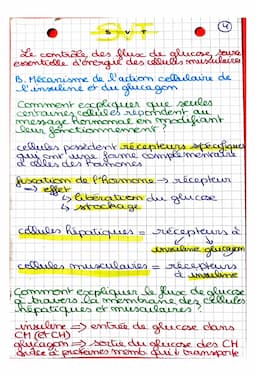 SVT
4
Le contrôle des flux de glucose, source
essentielle d'énergie des cellules musculaires
B. Mécanisme de l'action cellulaire de
l'insuline et du glucagon
Comment expliquer que seules
certaines cellules répondent au
message hormonal en modifiant
leur fonctionnement ?
cellules possèdent récepteurs spécifiques
qui ont une forme complémentaire
à celles des hormones
fixation de l'hormone → récepteur
→ effet
↳ libération du glucose
↳ stockage
cellules hépatiques = récepteurs à
insuline glucagon
cellules musculaires = récepteurs
à insuline
Comment expliquer le flux de glucose
à travers la membrane des cellules
hépatiques et musculaires ?
insuline ⇒ entrée de glucose dans
CM (et CH)
glucagon ⇒ sortie du glucose des CH
grâce à protéines memb. qui transporte